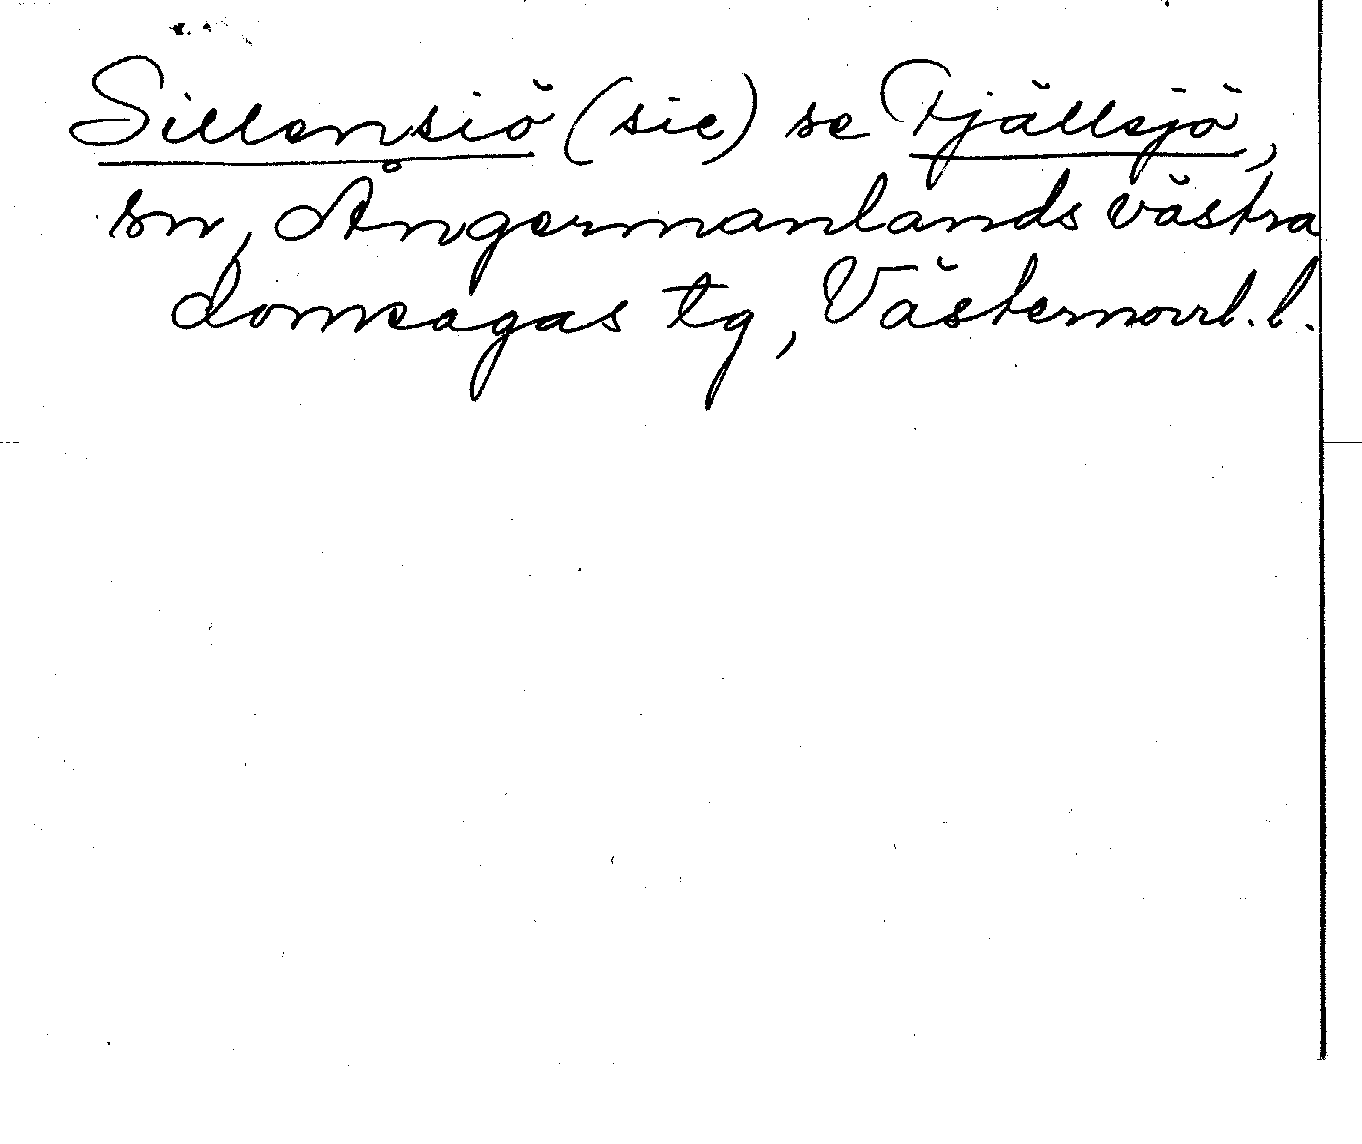 Sillensiö (sic) se Fjällsjö,
sn, Ångermanlands västra
domsagas tg, Västernorrl. l.